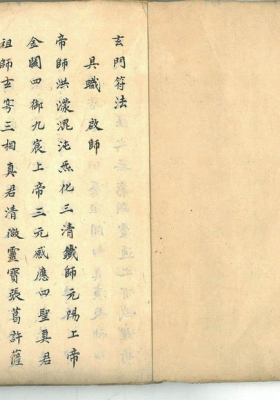 玄門符法
具職啟師
帝師洪濛溷沌炁化三清鐵師元陽上帝
金闕四御九宸上帝三元感應四聖真君
祖師玄穹三相真君清微靈寶張葛許薩